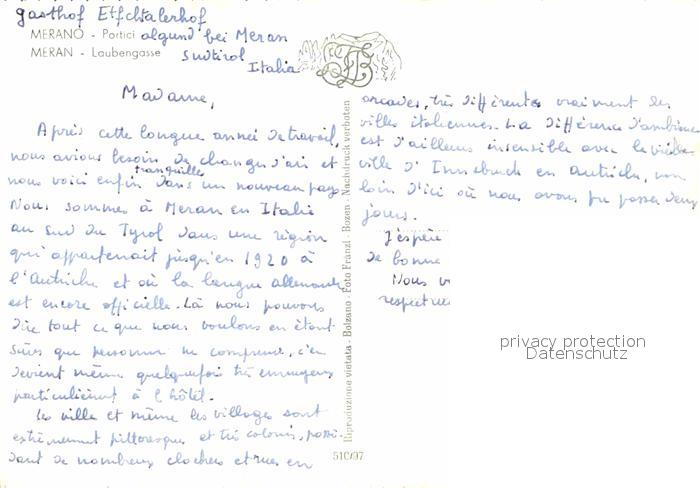 Gasthof Etschtalerhof
MERANO - Portici algund bei Meran
MERAN - Laubengasse Südtirol
Italia
Madame,
Après cette longue année de travail,
nous avions besoin de changer d'air et
nous voici enfin tranquilles dans un nouveau pays
Nous sommes à Meran en Italie
au sud du Tyrol dans une région
qui appartenait jusqu'en 1920 à
l'Autriche et où la langue allemande
est encore officielle. Là nous pouvons
dire tout ce que nous voulons en étant
sûrs que personne ne comprend, c'en
devient même quelquefois très ennuyeux
particulièrement à l'hôtel.
Les ville et même les villages sont
extrêmement pittoresques et très colorés, possé-
dant de nombreux clochers et rues en
arcades, très différentes vraiment des
villes italiennes. La différence d'ambiance
est d'ailleurs insensible avec la vieille
ville d'Innsbruck en Autriche, non
loin d'ici où nous avons pu passer deux
jours.
J'espère
de bonne
Nous v
respectue
Riproduzione vietata - Bolzano - Foto Fränzl - Bozen - Nachdruck verboten
51C/97
privacy protection
Datenschutz